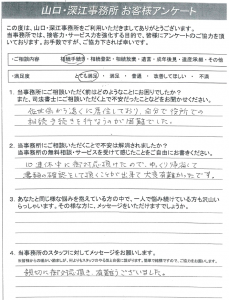 山口・深江事務所 お客様アンケート
この度は、山口・深江事務所をご利用いただきましてありがとうございます。
当事務所では、接客力・サービス力を強化する目的で、皆様にアンケートのご協力を頂いております。お手数ですが、ご協力下されば幸いです。
・ご相談内容 相続手続き・相続登記・相続放棄・遺言・成年後見・遺産承継・その他
・満足度 とても満足・満足・普通・改善してほしい・不満
1. 当事務所にご相談いただく前はどのようなことにお困りでしたか？
また、司法書士にご相談いただく上で不安だったことなどをお聞かせください。
役所から遠くに居住しており、自分で役所での
相続手続きを行なうのが困難でした。
2. 当事務所にご相談いただくことで不安は解消されましたか？
当事務所の無料相談・サービスを受けて感じたことをご自由にお書きください。
対応頂けたので、ゆっくり帰省して
書類の確認をして頂くことが出来て大変有難かったです。
3. あなたと同じ様な悩みを抱えている方の中で、一人で悩み続けている方も沢山いらっしゃいます。その様な方に、メッセージをいただけますでしょうか。
4. 当事務所のスタッフに対してメッセージをお願いします。
親切に御対応頂き、有難うございました。